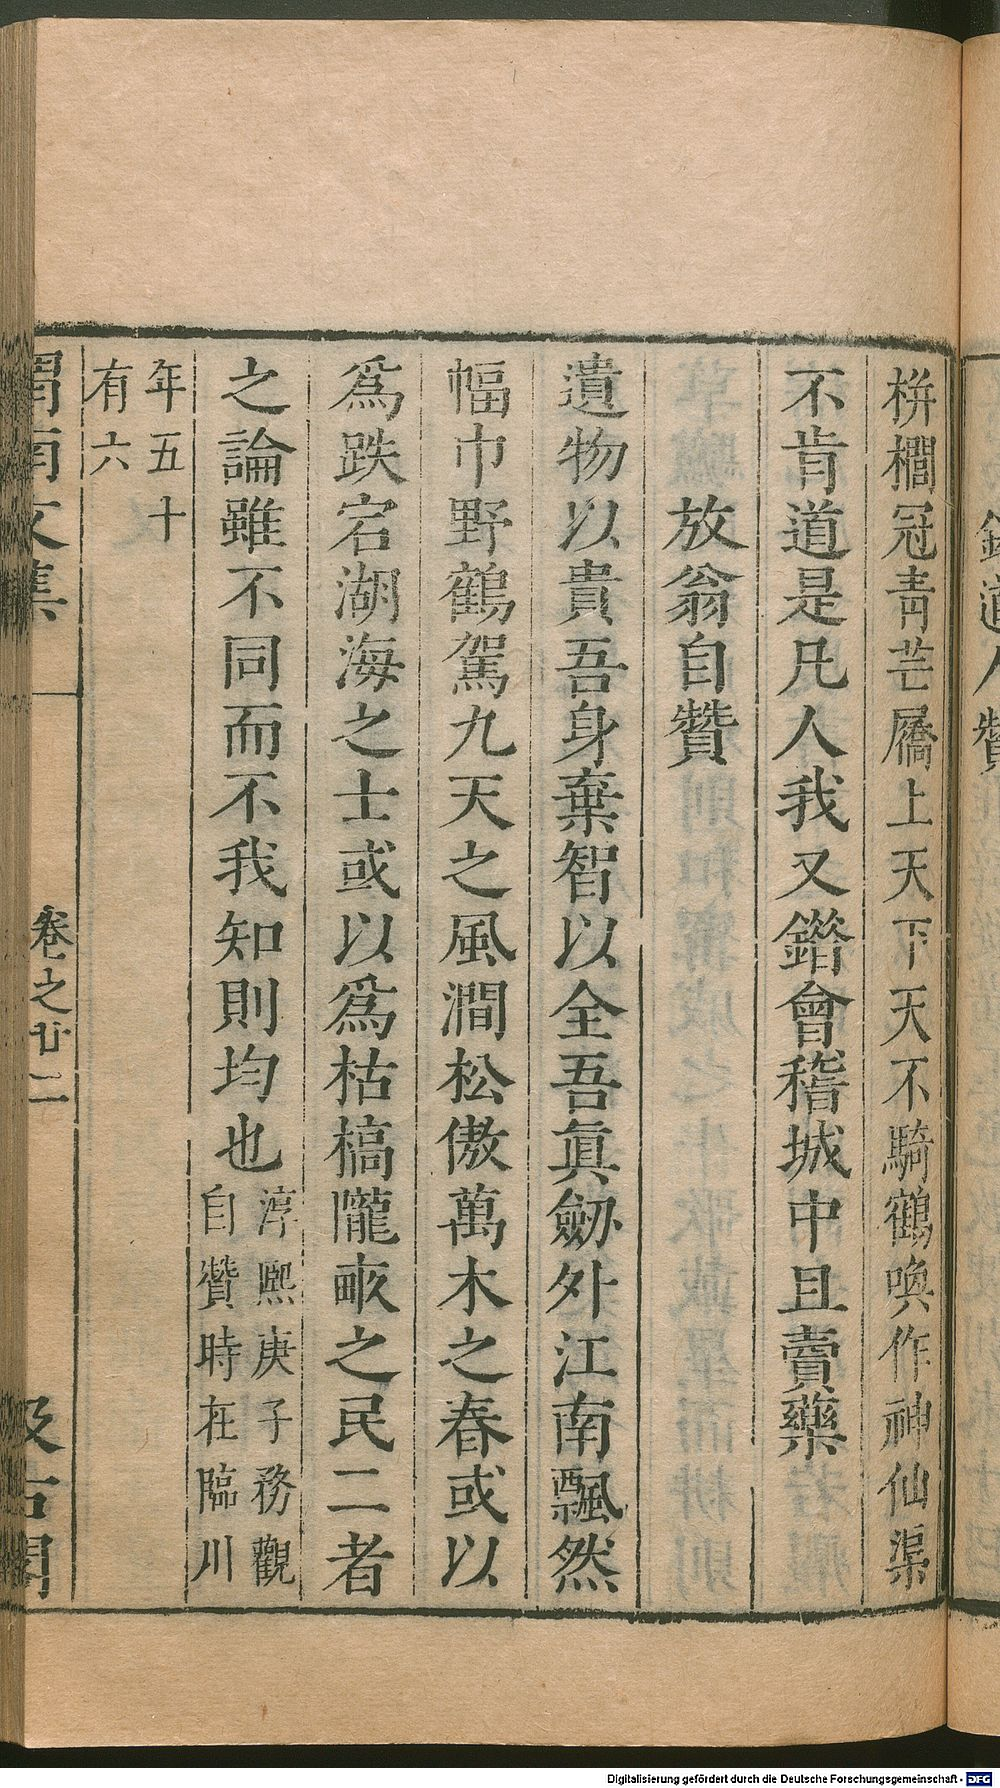 鏡道人贊
栟櫚冠青芒屩上天下天不騎鶴喚作神仙渠
不肯道是凡人我又錯會稽城中且賣藥
放翁自贊
遺物以貴吾身棄智以全吾眞劒外江南飄然
幅巾野鶴駕九天之風澗松傲萬木之春或以
爲跌宕湖海之士或以爲枯槁隴畞之民二者
之論雖不同而不我知則均也
淳熙庚子務觀
自贊時在臨川
年五十
有六
渭南文集
卷之廿二
汲古閣
Digitalisierung gefördert durch die Deutsche Forschungsgemeinschaft - DFG